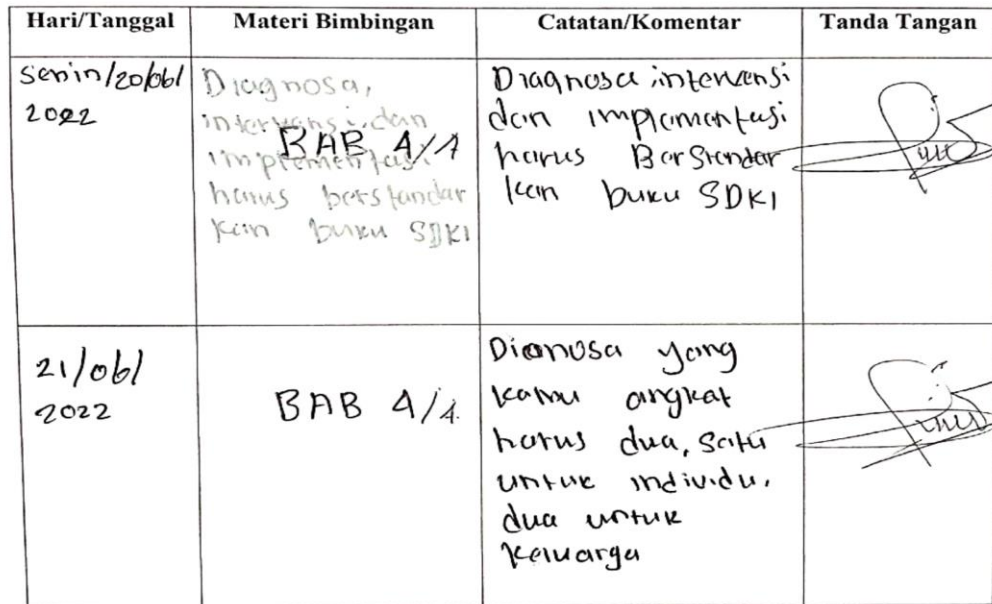 Hari/Tanggal Materi Bimbingan Catatan/Komentar Tanda Tangan
Senin/20/06/
2022
Diagnosa,
intervensi, dan
implementasi
harus berstandar
kan buku SDKI
BAB 4/1
Diagnosa intervensi
dan implementasi
harus BerStandar
kan buku SDKI
21/06/
2022
BAB 4/1.
Dianosa yang
kamu angkat
harus dua, satu
untuk individu,
dua untuk
keluarga